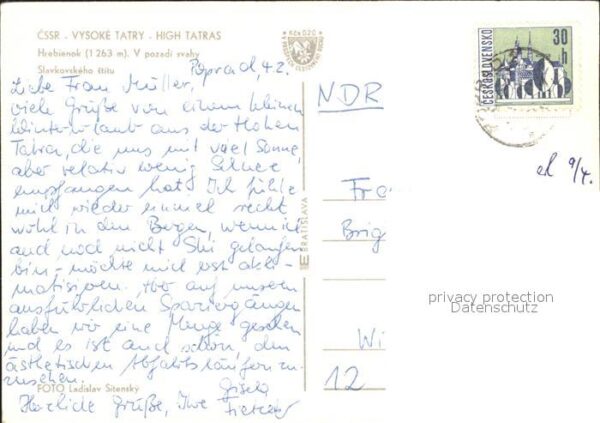 ČSSR - VYSOKÉ TATRY - HIGH TATRAS
Hrebienok (1 263 m). V pozadí svahy
Slavkovského štítu
Poprad, 4.2.
Liebe Frau Müller,
viele Grüße von einem kleinen
Winterurlaub aus der Hohen
Tatra, die uns mit viel Sonne,
aber relativ wenig Schnee
empfangen hat. Ich fühle
mich wieder einmal recht
wohl in den Bergen, wenn ich
auch noch nicht Ski gelaufen
bin - möchte mich erst akli-
matisieren. Aber auf unseren
ausführlichen Spaziergängen
haben wir eine Menge gesehen
und es ist auch schön, den
ästhetischen Abfahrtsläufern zu-
zusehen.
FOTO Ladislav Sitenský
Herzliche Grüße, Ihre Gisela
BRATISLAVA
NDR
ČESKOSLOVENSKO
30
h
el 9/4.
Fr
Brig
Wi
12
privacy protection
Datenschutz